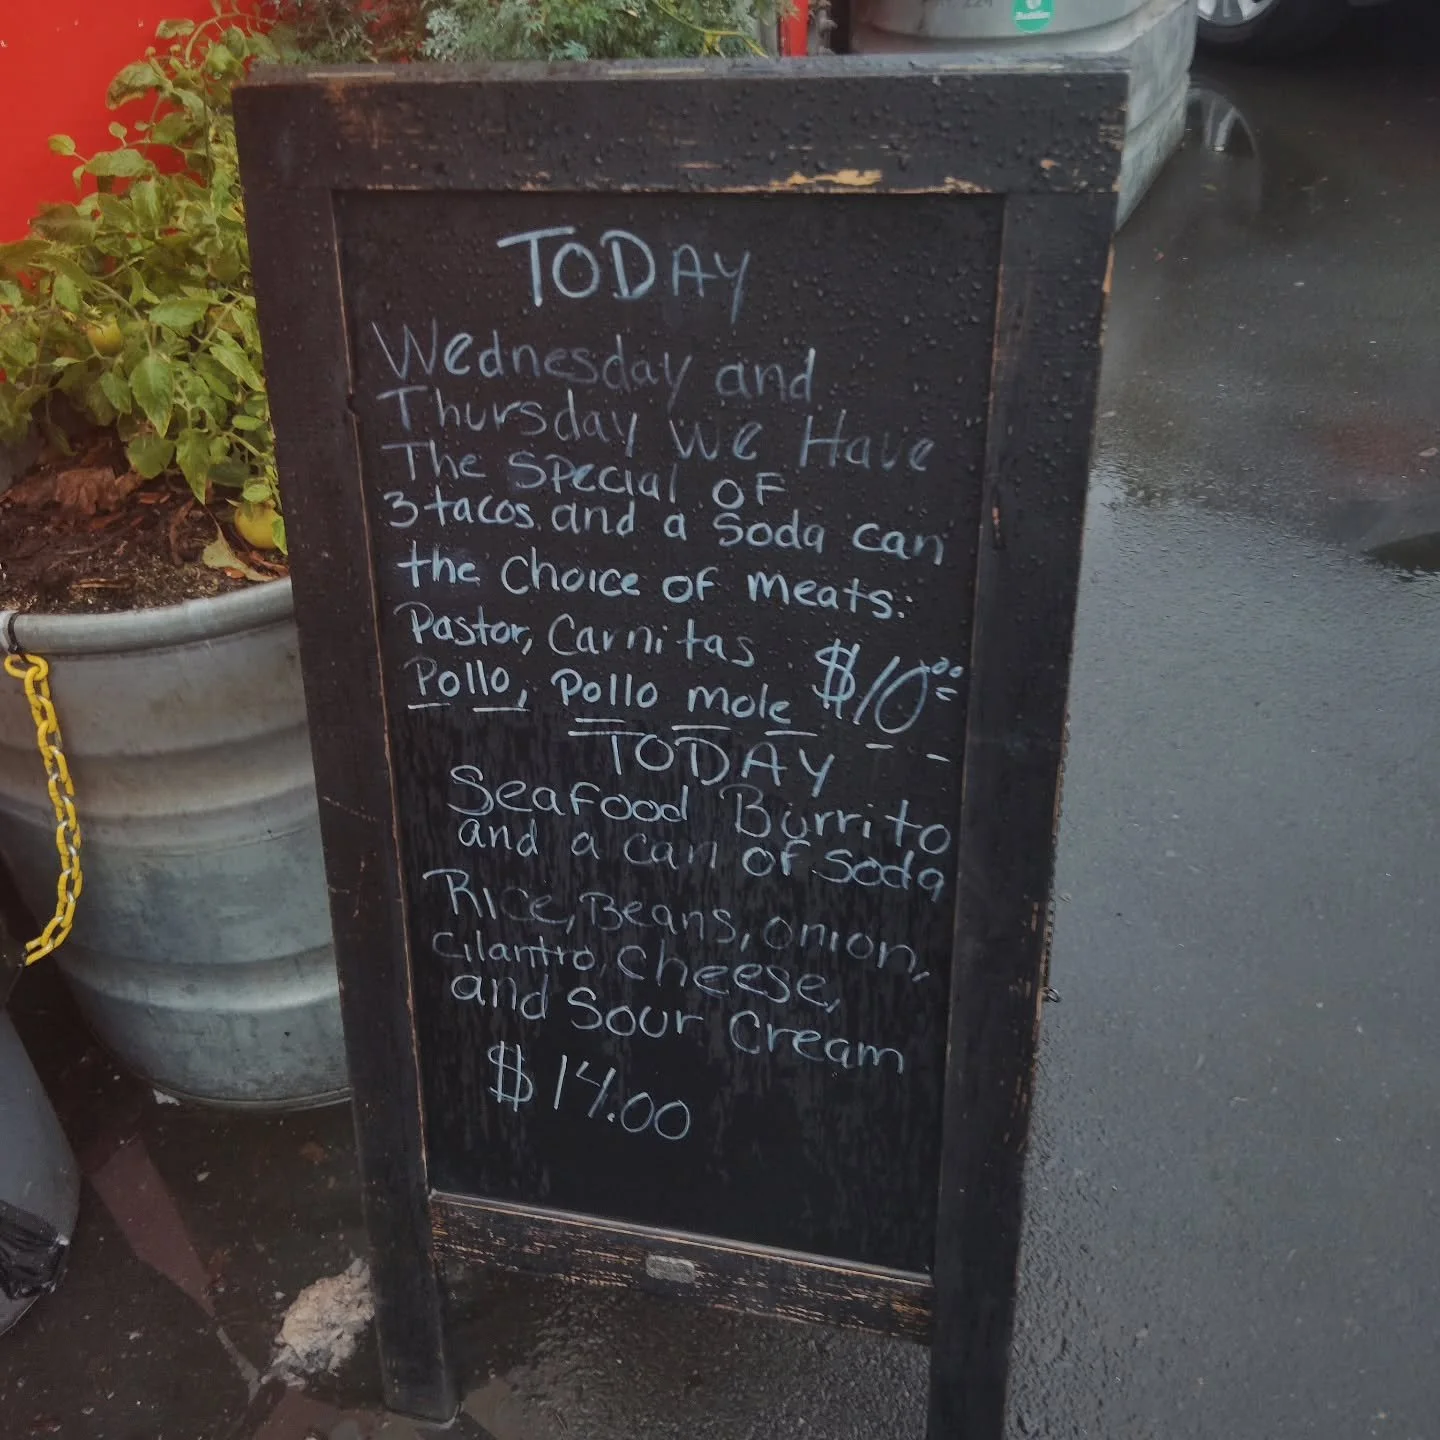 TODAY
Wednesday and
Thursday we Have
The Special of
3 tacos and a Soda can
the Choice of meats:
Pastor, Carnitas
Pollo, Pollo mole $10.00
TODAY
Seafood Burrito
and a can of Soda
Rice, Beans, onion,
Cilantro, Cheese,
and Sour Cream
$14.00